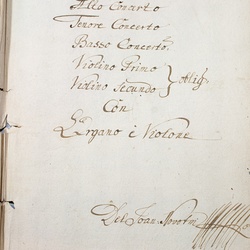 Alto Concerto
Tenore Concerto
Basso Concerto.
Violino Primo
Violino Secundo } Oblig:
Con
Organo i Violone
Del Joan. Novotni